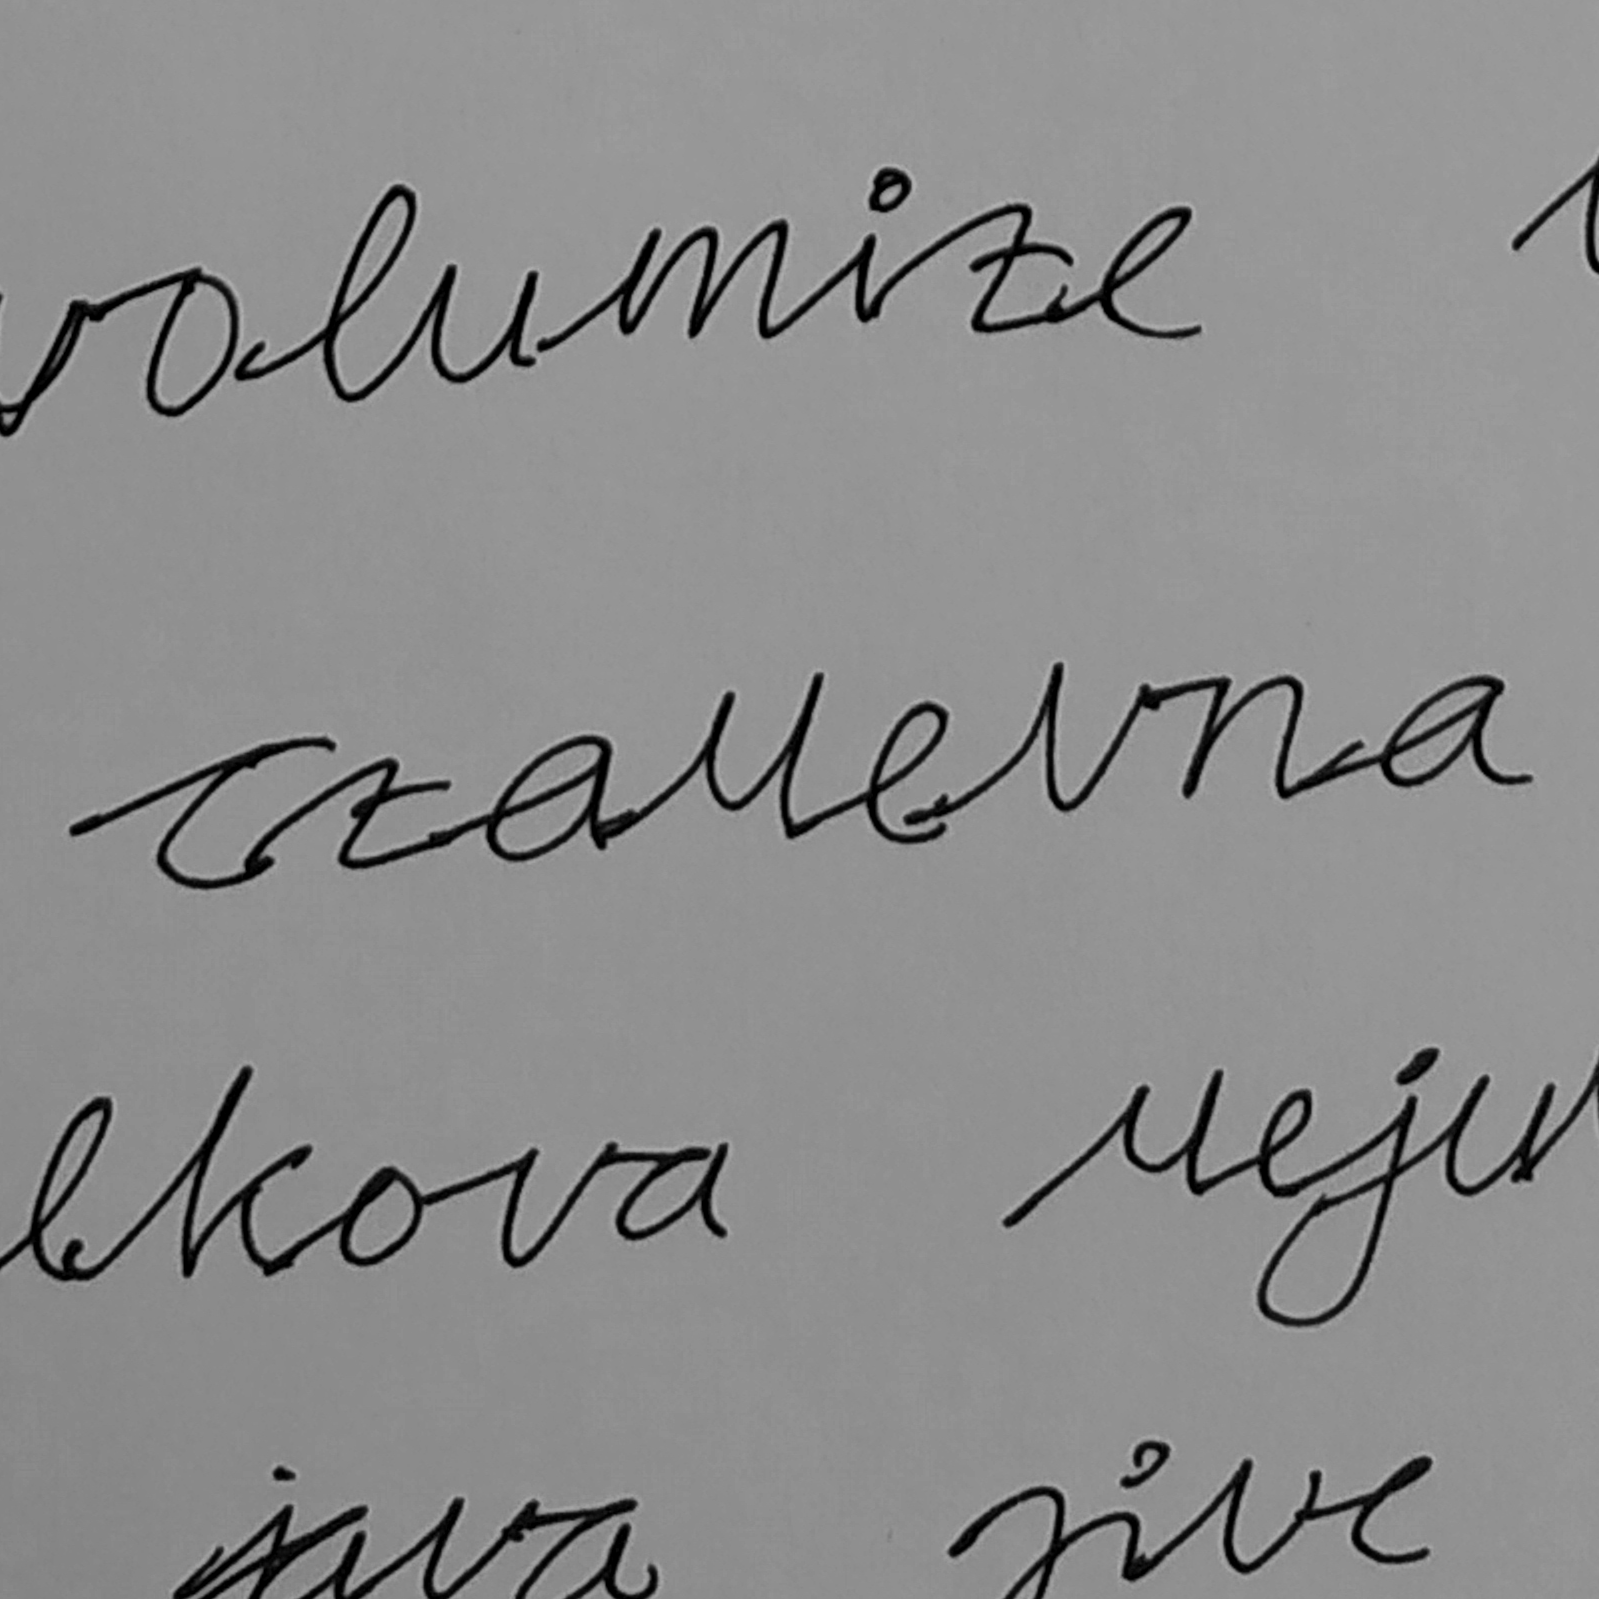 volumize
czauevna
ekova ueju
java jive